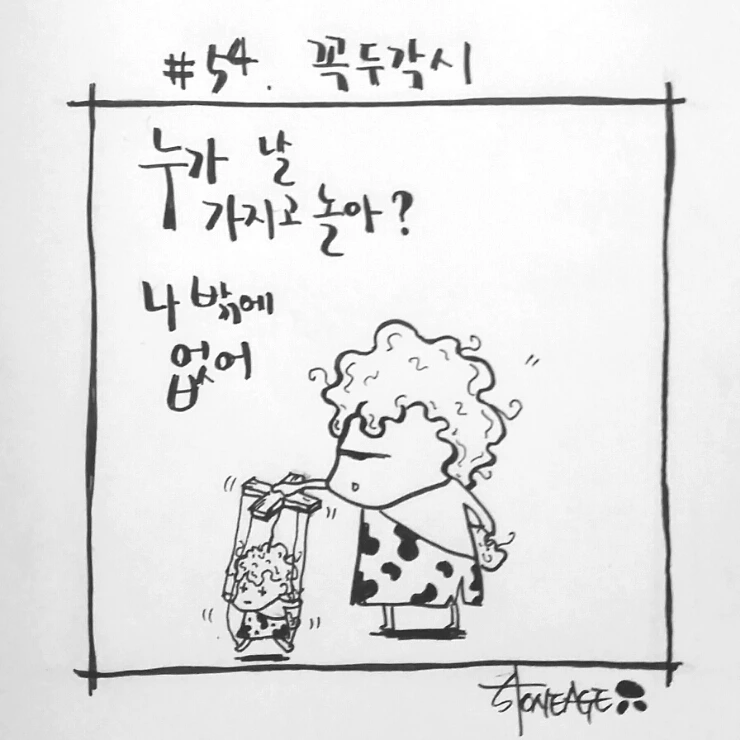 #54. 꼭두각시
누가 날
가지고 놀아?
나 밖에
없어
STONEAGE